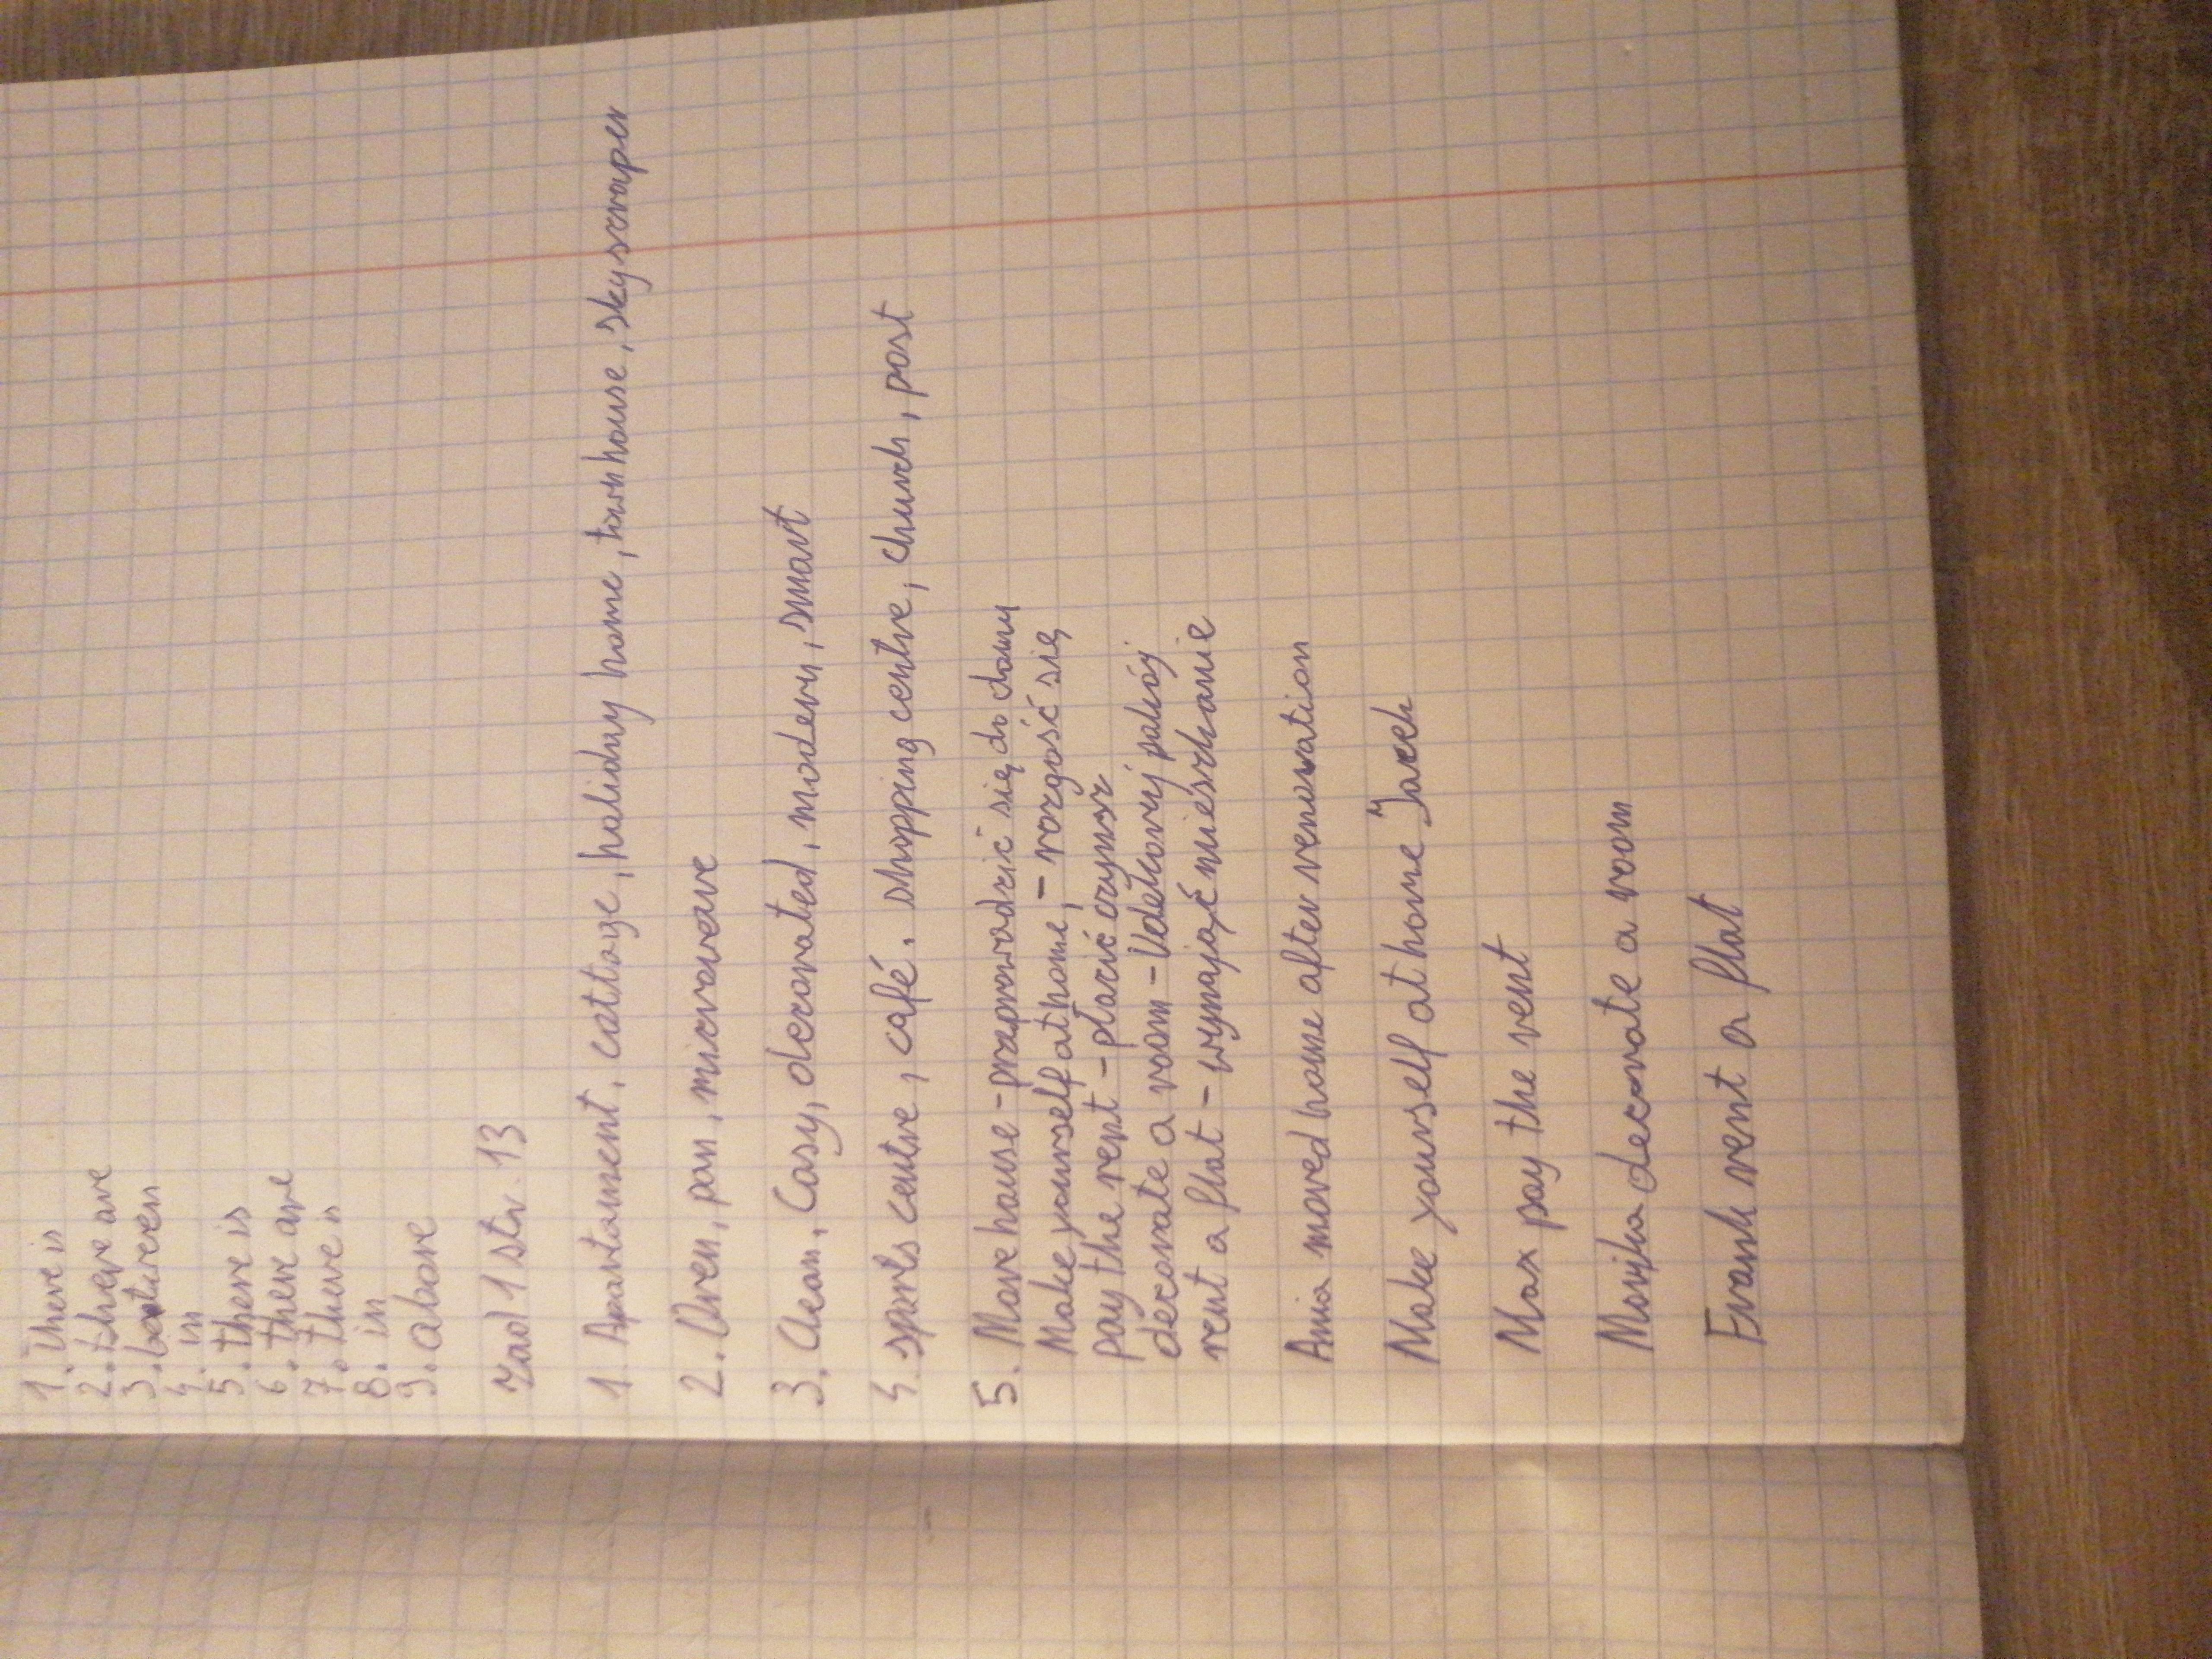 1. there is
2. there are
3. between
4. in
5. there is
6. there are
7. there is
8. in
9. above
Zad 1 str. 13
1. Apartament, cottage, holiday home, town house, skyscraper
2. Oven, pan, microweave
3. Clean, Cosy, decorated, modern, smart
4. sports centre, café. shopping centre, church, post
5. Move house - przeprowadzić się do domu
Make yourself at home, - rozgość się
pay the rent - płacić czynsz
decorate a room - Udekoruj pokój
rent a flat - wynająć mieszkanie
Ania moved home after renovation
Make yourself at home "Jacek
Max pay the rent
Monika decorate a room
Frank rent a flat